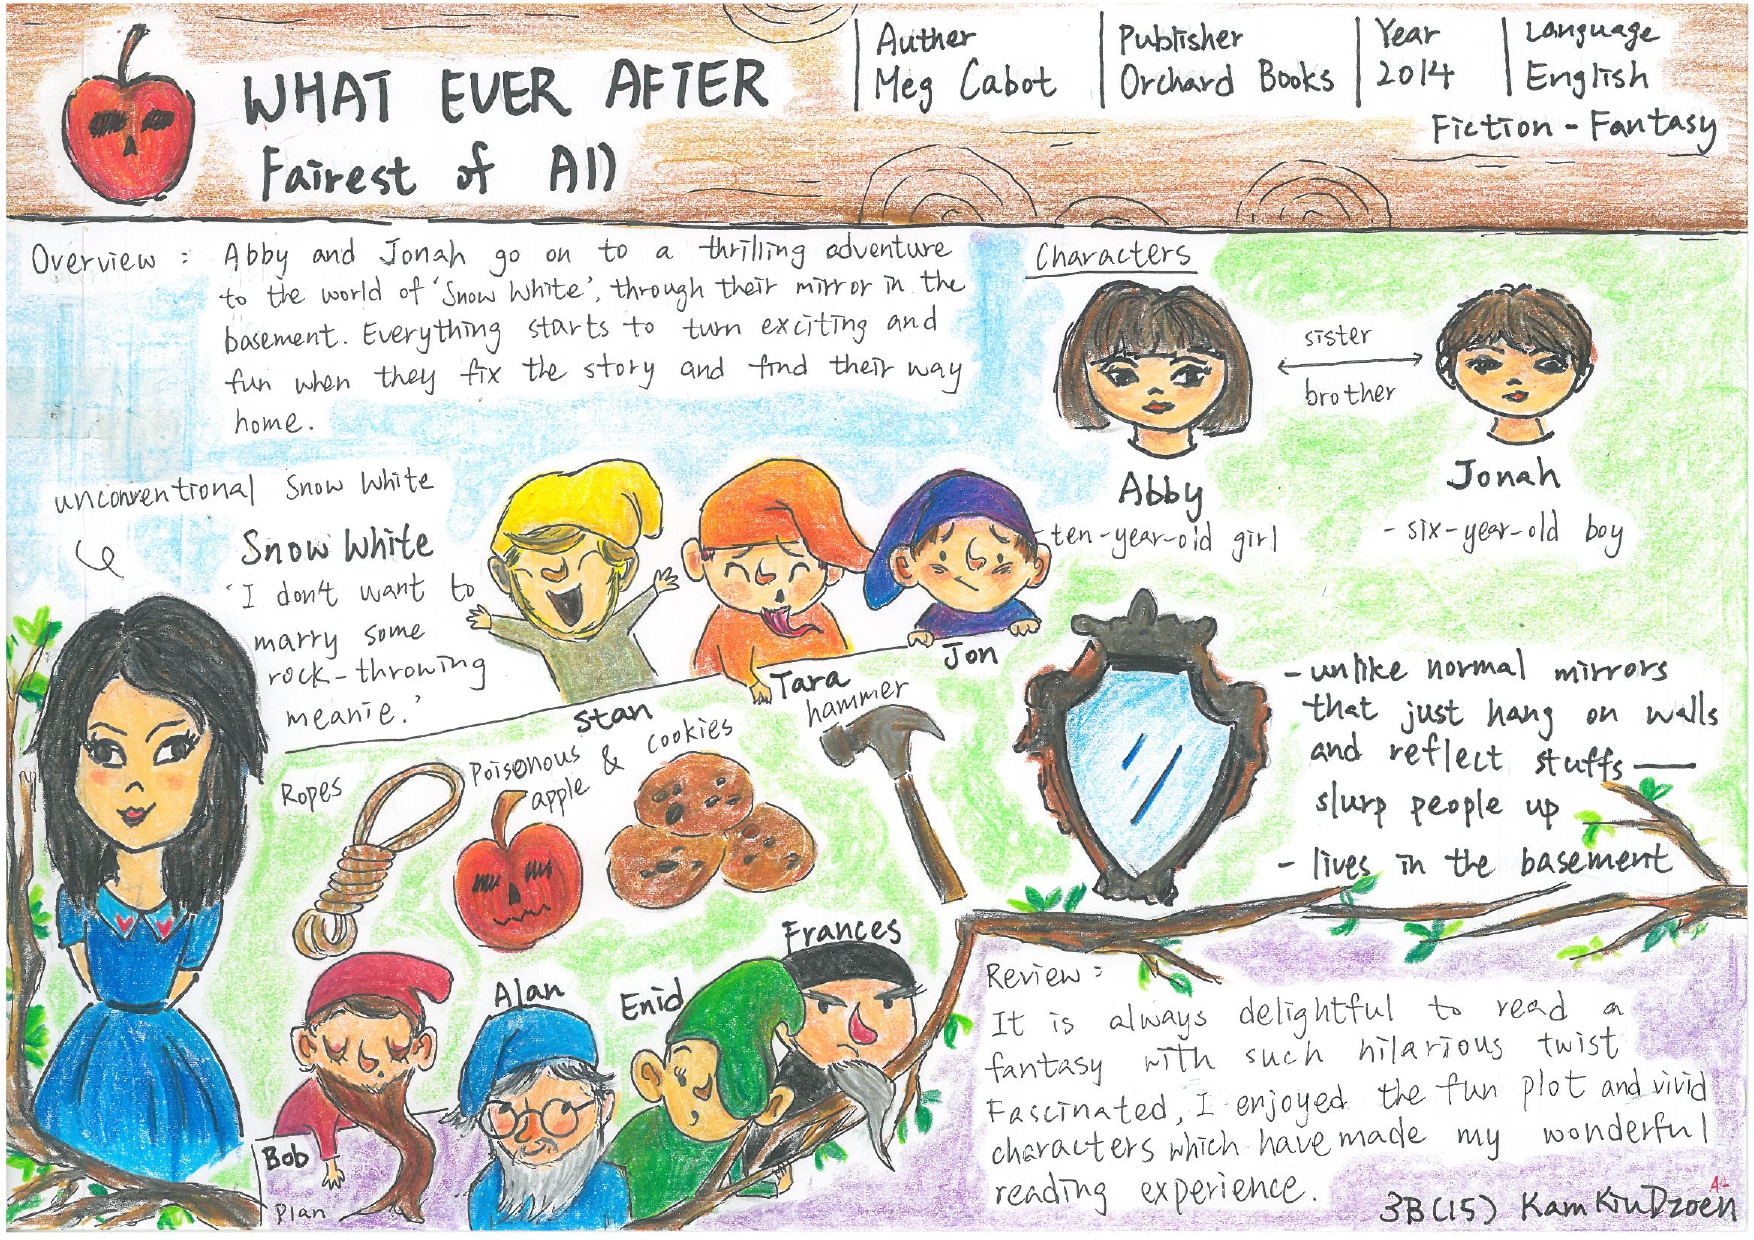 WHAT EVER AFTER
Fairest of All
Auther
Meg Cabot
Publisher
Orchard Books
Year
2014
Language
English
Fiction - Fantasy
Overview : Abby and Jonah go on to a thrilling adventure
to the world of 'Snow White', through their mirror in the
basement. Everything starts to turn exciting and
fun when they fix the story and find their way
home.
Characters
sister
brother
Abby
- ten-year-old girl
Jonah
- six-year-old boy
unconventional Snow White
Snow White
'I don't want to
marry some
rock-throwing
meanie.'
Stan
Tara
Jon
Ropes
Poisonous
apple
& cookies
hammer
- unlike normal mirrors
that just hang on walls
and reflect stuffs —
slurp people up
- lives in the basement
Bob
Plan
Alan
Enid
Frances
Review :
It is always delightful to read a
fantasy with such hilarious twist
Fascinated, I enjoyed the fun plot and vivid
characters which have made my wonderful
reading experience.
3B(15) Kam Kiu Dzoen
A-